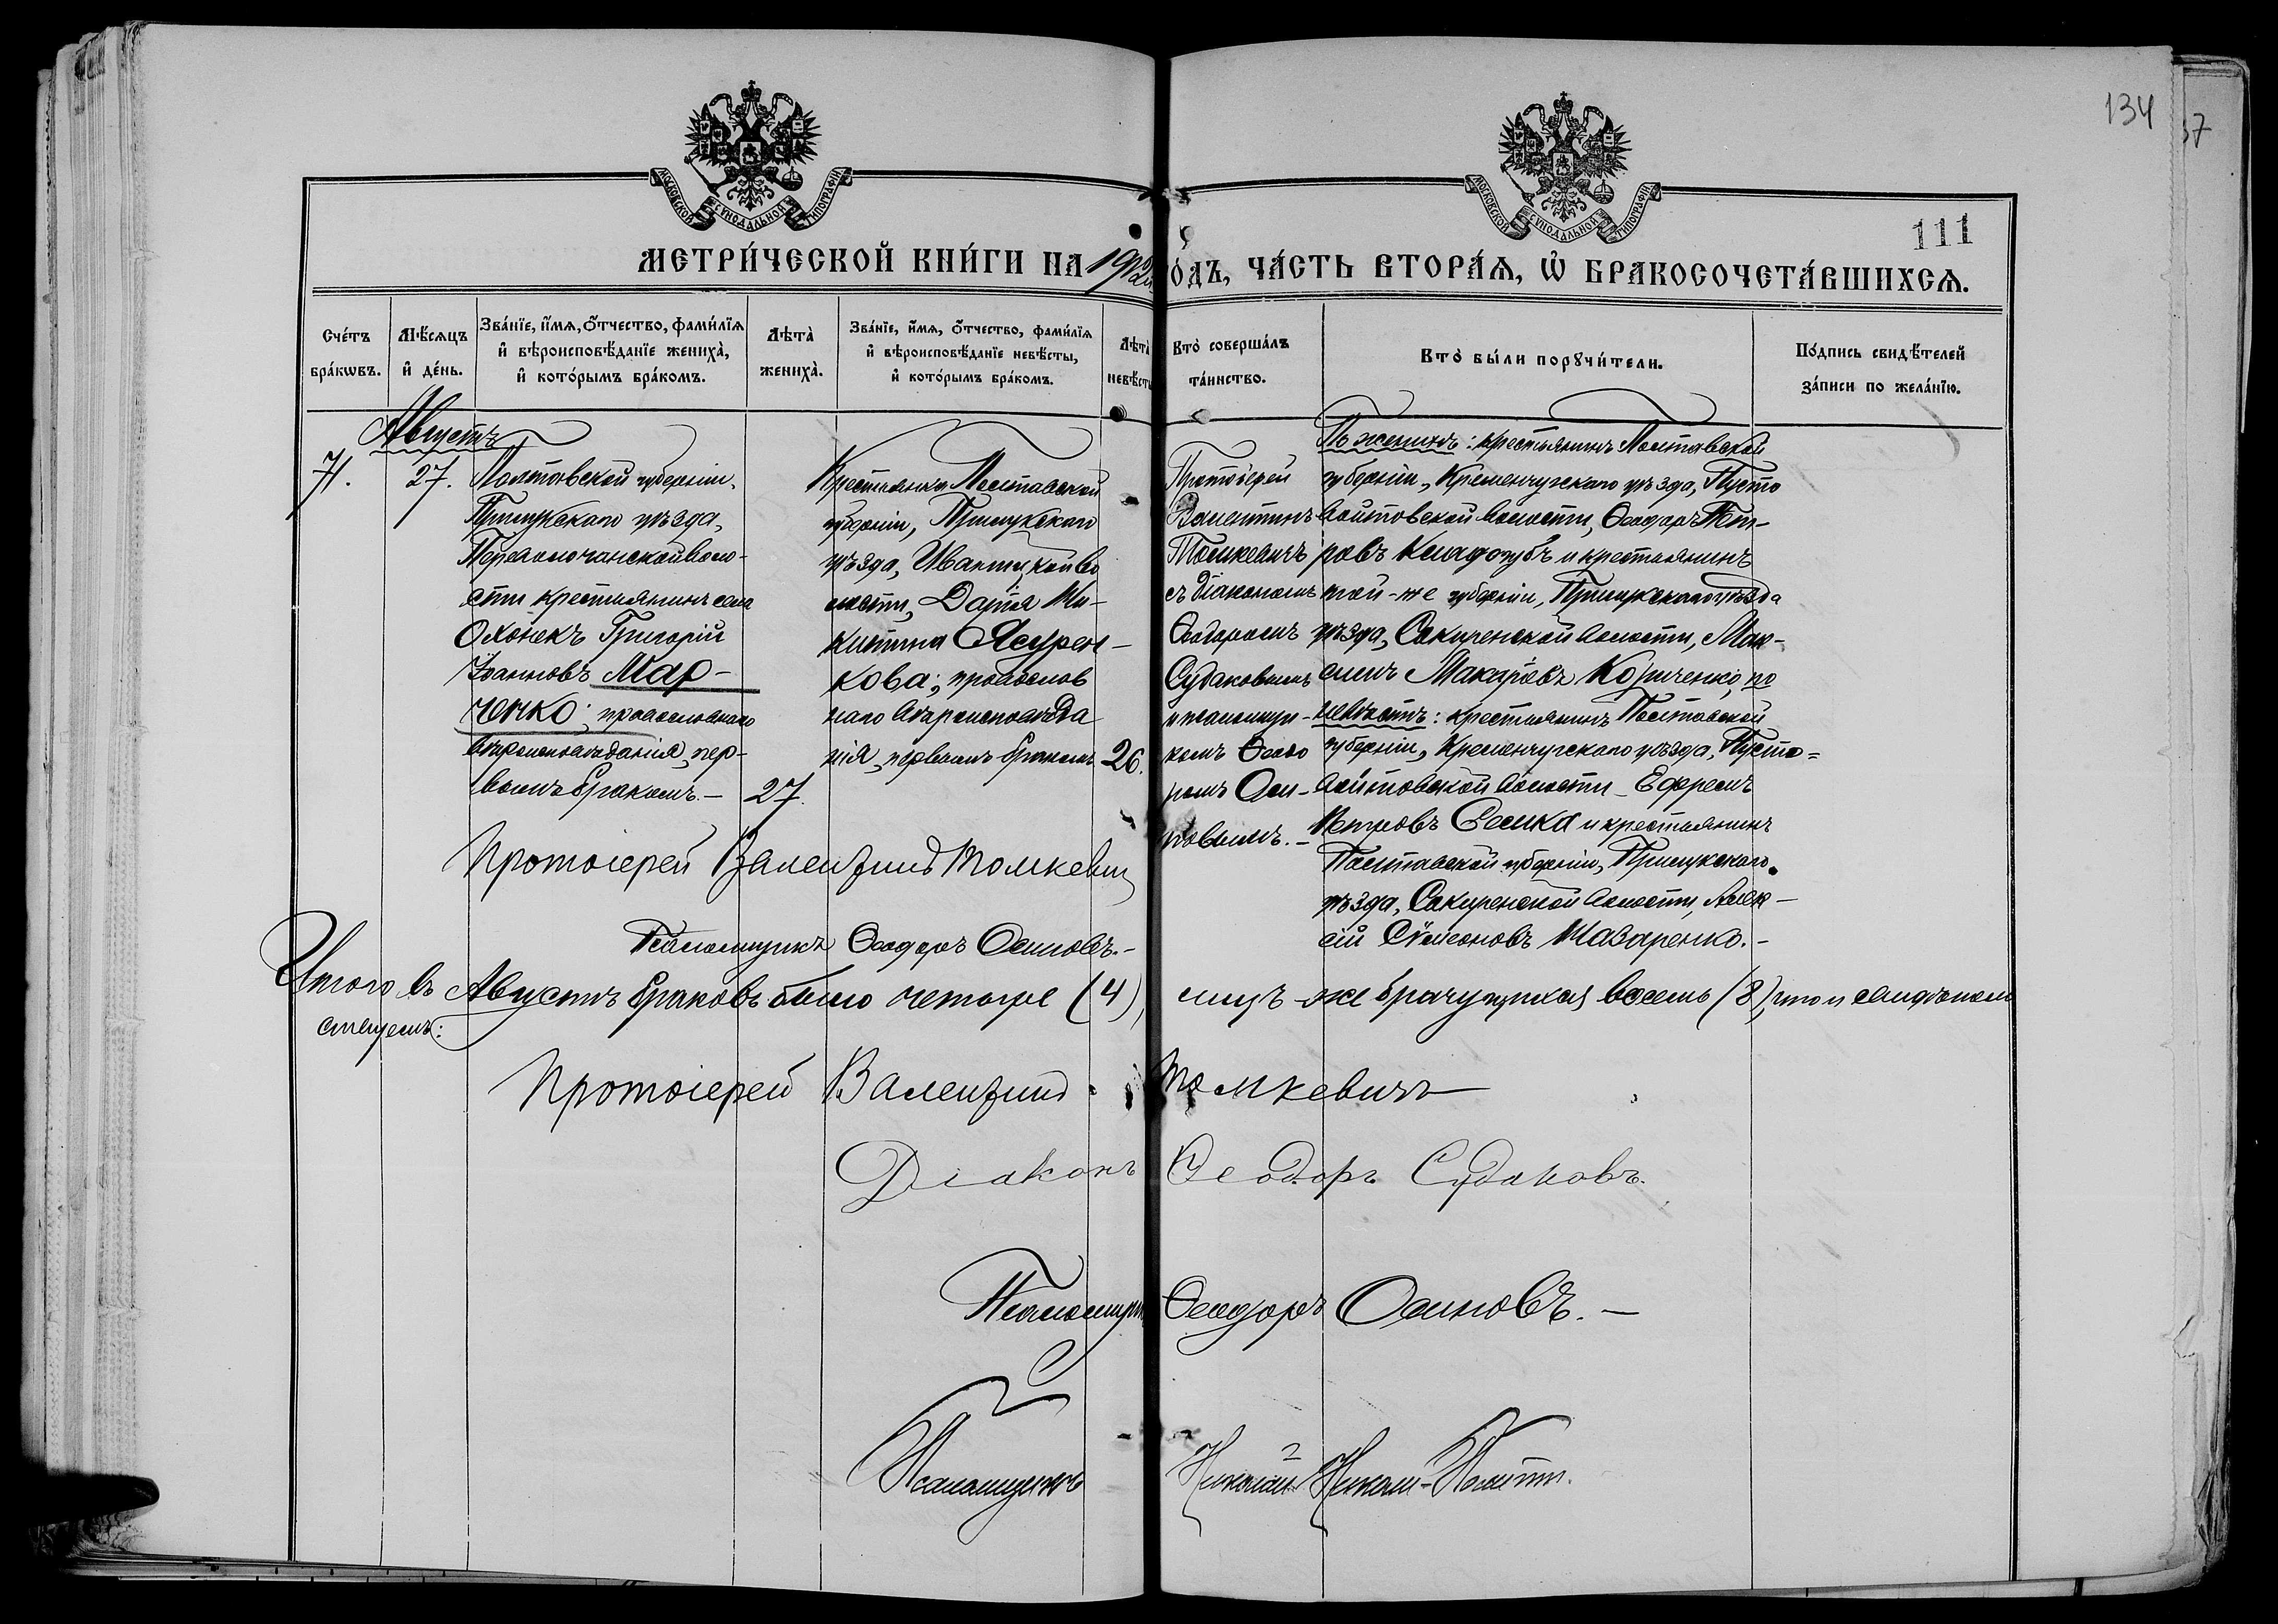 134
37
МОСКОВСКОЙ СѴНОДАЛЬНОЙ ТИПОГРАФІИ
МОСКОВСКОЙ СѴНОДАЛЬНОЙ ТИПОГРАФІИ
111
МЕТРИ́ЧЕСКОЙ КНИ́ГИ НА 1912 ГО́ДЪ, ЧА́СТЬ ВТОРА́Ѧ, Ѡ҆ БРАКОСОЧЕТА́ВШИХСѦ.
Сче́тъ
бра́кѡвъ.
Мѣ́сѧцъ
и҆ де́нь.
Зва́нїе, и҆́мѧ, ѻ҆́тчество, фами́лїѧ
и҆ вѣроисповѣ́данїе жениха̀,
и҆ кото́рымъ бра́комъ.
Лѣта̀
жениха̀.
Зва́нїе, и҆́мѧ, ѻ҆́тчество, фами́лїѧ
и҆ вѣроисповѣ́данїе невѣ́сты,
и҆ кото́рымъ бра́комъ.
Лѣта̀
невѣ́сты
Кто̀ соверша́лъ
та́инство.
Кто̀ бы́ли порꙋчи́тели.
По́дпись свидѣ́телей
за́писи по жела́нїю.
Августъ
71.
27.
Полтавской губерніи,
Прилукскаго уѣзда,
Переволочанской воло-
сти крестьянинъ села
Охонекъ Григорій
Іоанновъ Мар-
ченко; православнаго
вѣроисповѣданія, пер-
вымъ бракомъ.-
27.
Крестьянка Полтавской
губерніи, Прилукскаго
уѣзда, Иваницкой во
лости, Дарія Ни-
китина Ясурен-
кова; православ
наго вѣроисповѣда
нія, первымъ бракомъ
26.
Протоіерей
Валентинъ
Томкевичъ
съ діакономъ
Ѳеодоромъ
Судаковымъ
и псаломщи-
комъ Ѳеодо
ромъ Оси-
повымъ.-
По женихѣ: крестьянинъ Полтавской
губерніи, Кременчугскаго уѣзда, Пусто
войтовской волости, Ѳеодоръ Пет-
ровъ Кладозубъ и крестьянинъ
той-же губерніи, Прилукскаго уѣзда
уѣзда, Сокиренской волости, Мак-
симъ Макаріевъ Козиченко, по
невѣстѣ: крестьянинъ Полтавской
губерніи, Кременчугскаго уѣзда, Пусто=
войтовской волости Ефремъ
Петровъ Семка и крестьянинъ
Полтавской губерніи, Прилукскаго
уѣзда, Сокиренской волости, Алек-
сій Сѵмеоновъ Шаваренко.-
Протоіерей Валентинъ Томкевич
Псаломщикъ Ѳеодоръ Осиповъ.-
Итого въ Августѣ браковъ было четыре (4), лицъ-же брачущихся восемь (8), что и свидѣтель
ствуемъ:
Протоіерей Валентинъ Томкевичъ
Діаконъ Ѳеодоръ Судаковъ.
Псаломщик Ѳеодоръ Осиповъ.-
Псаломщикъ Николай